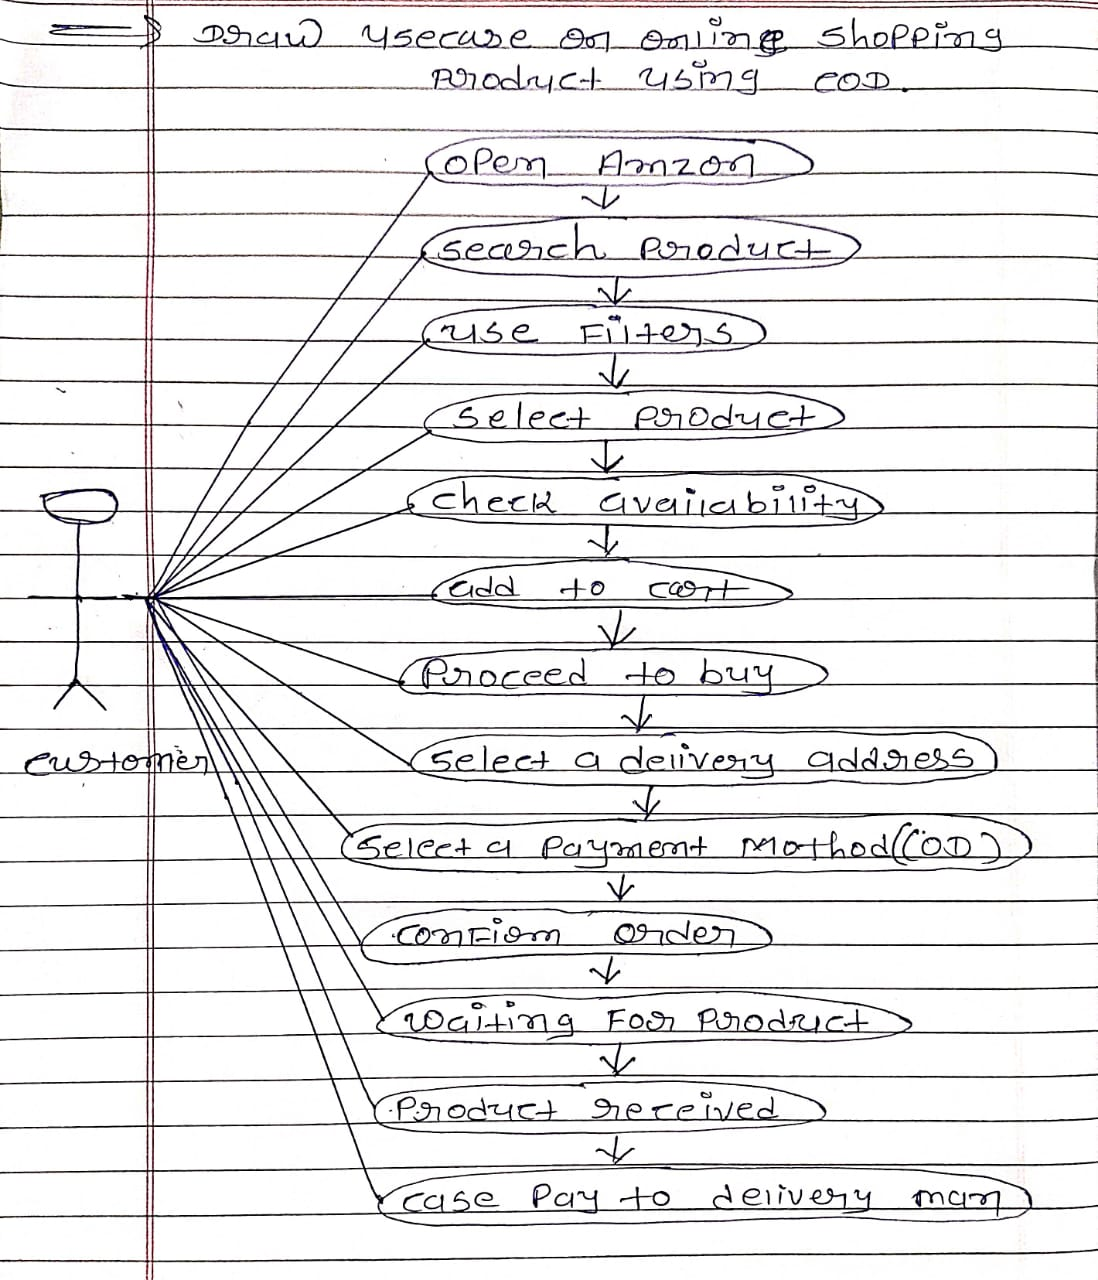 Draw usecase on online shopping
product using COD.
open Amzon
search product
use Filters
select product
check availability
add to cart
Proceed to buy
customer
select a delivery address
select a payment Mothod(COD)
confirm order
waiting For product
Product received
case pay to delivery man